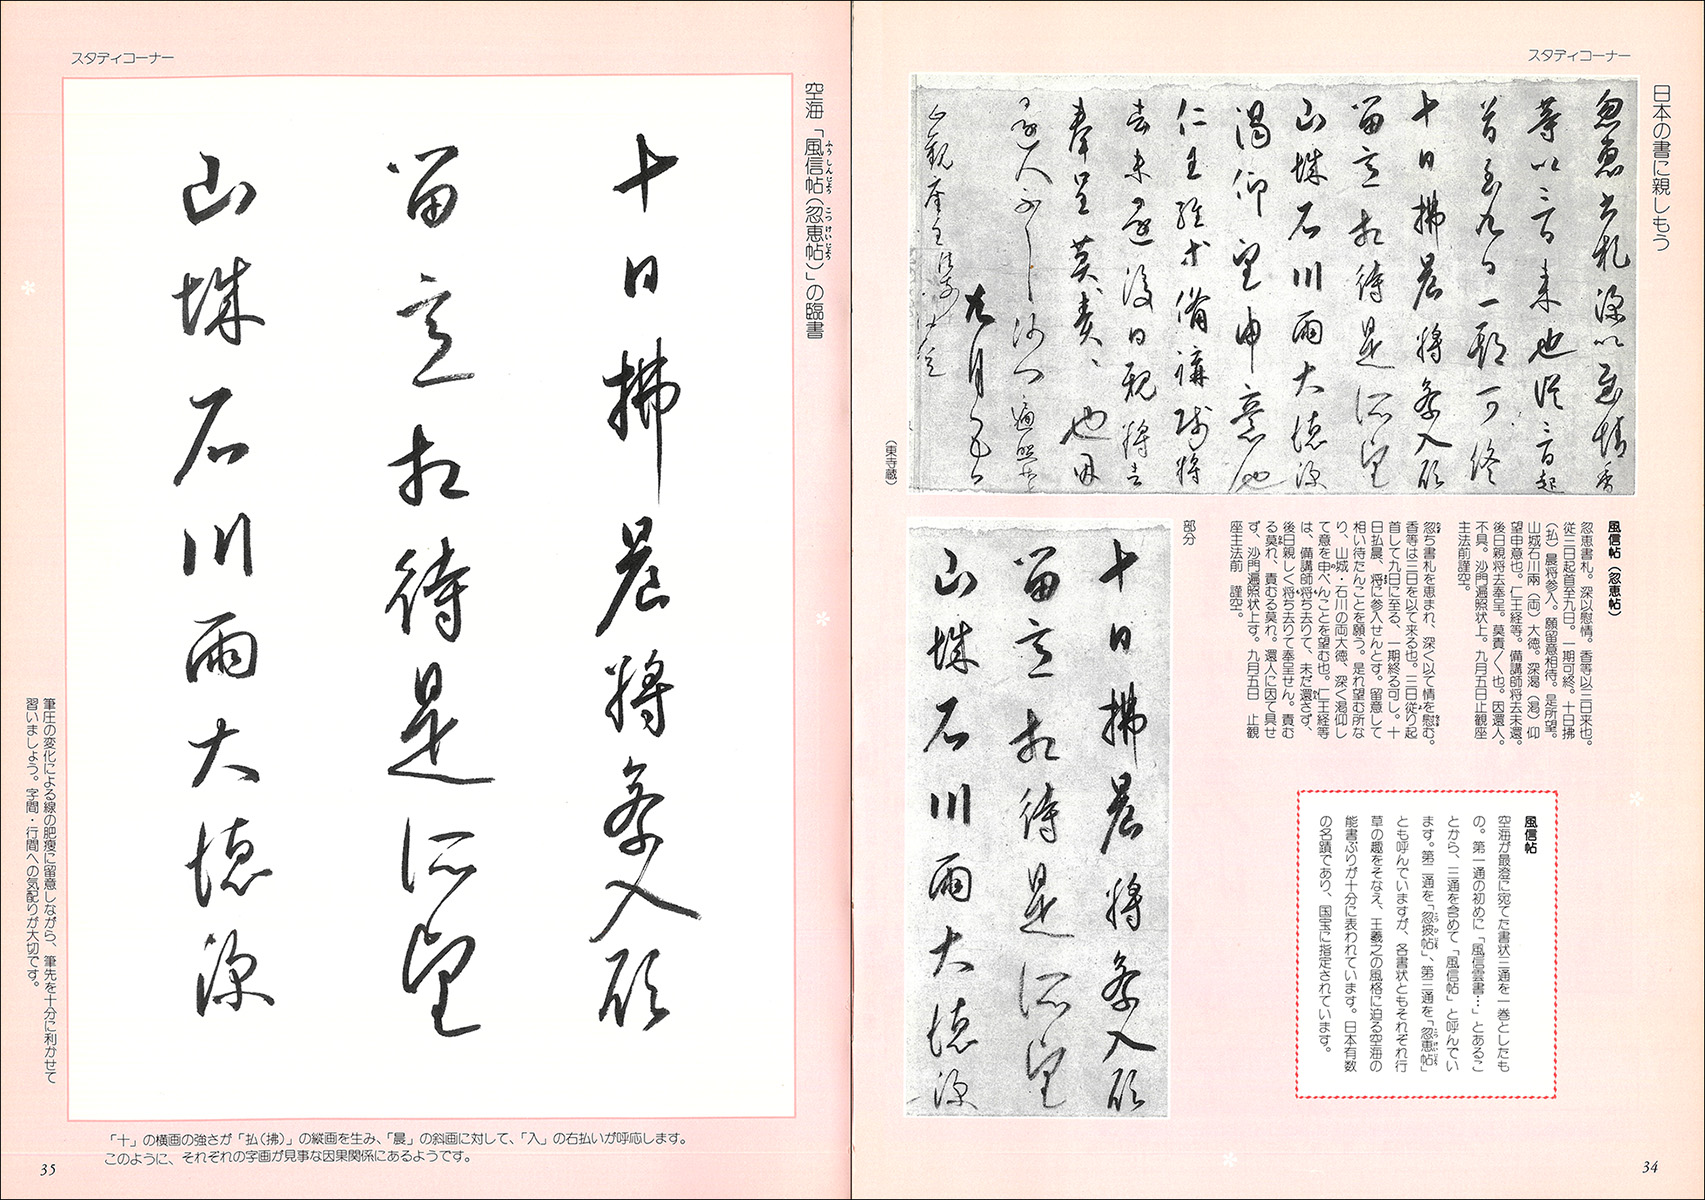 スタディコーナー
日本の書に親しもう
忽恵書札深以慰情香
等以三日来也従三日起
首至九日一期可終
十日拂晨将参入願
留意相待是所望
山城石川兩大徳深
渇仰望申意也
仁王経等備講師将
去未還後日親将去
奉呈莫責々々也因
還人不具沙門遍照状上
九月五日
止観座主法前謹空
（東寺蔵）
風信帖（忽恵帖）
忽恵書札。深以慰情。香等以三日来也。
従三日起首至九日。一期可終。十日拂
（払）晨将参入。願留意相待。是所望。
山城石川兩（両）大徳。深渇（渇）仰
望申意也。仁王経等。備講師将去未還。
後日親将去奉呈。莫責〱也。因還人。
不具。沙門遍照状上。九月五日止観座
主法前謹空。
忽ち書札を恵まれ、深く以て情を慰む。
香等は三日を以て来る也。三日従り起
首して九日に至る、一期終る可し。十
日払晨、将に参入せんとす。留意して
相い待たんことを願う。是れ望む所な
り、山城・石川の両大徳、深く渇仰し
て意を申べんことを望む也。仁王経等
は、備講師将ち去りて、未だ還さず、
後日親しく将ち去りて奉呈せん。責む
る莫れ、責むる莫れ。還人に因て具せ
ず、沙門遍照状上す。九月五日　止観
座主法前　謹空。
部分
十日拂晨将参入願
留意相待是所望
山城石川兩大徳深
風信帖
空海が最澄に宛てた書状三通を一巻としたも
の。第一通の初めに「風信雲書…」とあるこ
とから、三通を含めて「風信帖」と呼んでい
ます。第二通を「忽披帖」、第三通を「忽恵帖」
とも呼んでいますが、各書状ともそれぞれ行
草の趣をそなえ、王羲之の風格に迫る空海の
能書ぶりが十分に表われています。日本有数
の名蹟であり、国宝に指定されています。
34
スタディコーナー
空海「風信帖（忽恵帖）」の臨書
十日拂晨将参入願
留意相待是所望
山城石川兩大徳深
筆圧の変化による線の肥痩に留意しながら、筆先を十分に利かせて
習いましょう。字間・行間への気配りが大切です。
「十」の横画の強さが「払（拂）」の縦画を生み、「晨」の斜画に対して、「入」の右払いが呼応します。
このように、それぞれの字画が見事な因果関係にあるようです。
35